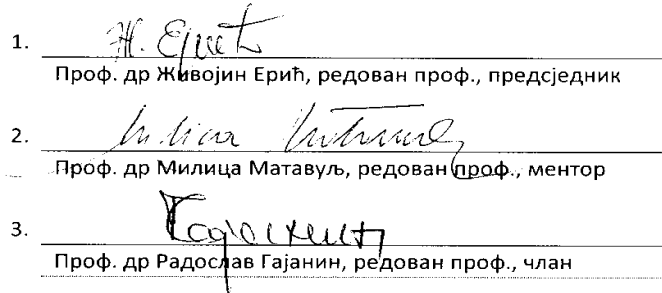 1. Ж. Ерић
Проф. др Живојин Ерић, редован проф., предсједник
2.
Проф. др Милица Матавуљ, редован проф., ментор
3.
Проф. др Радослав Гајанин, редован проф., члан